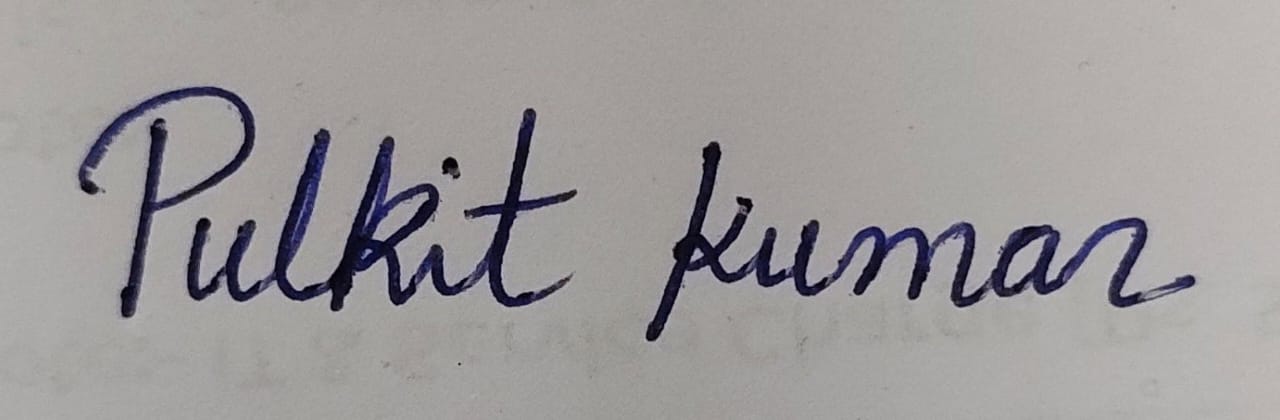 Pulkit kumar